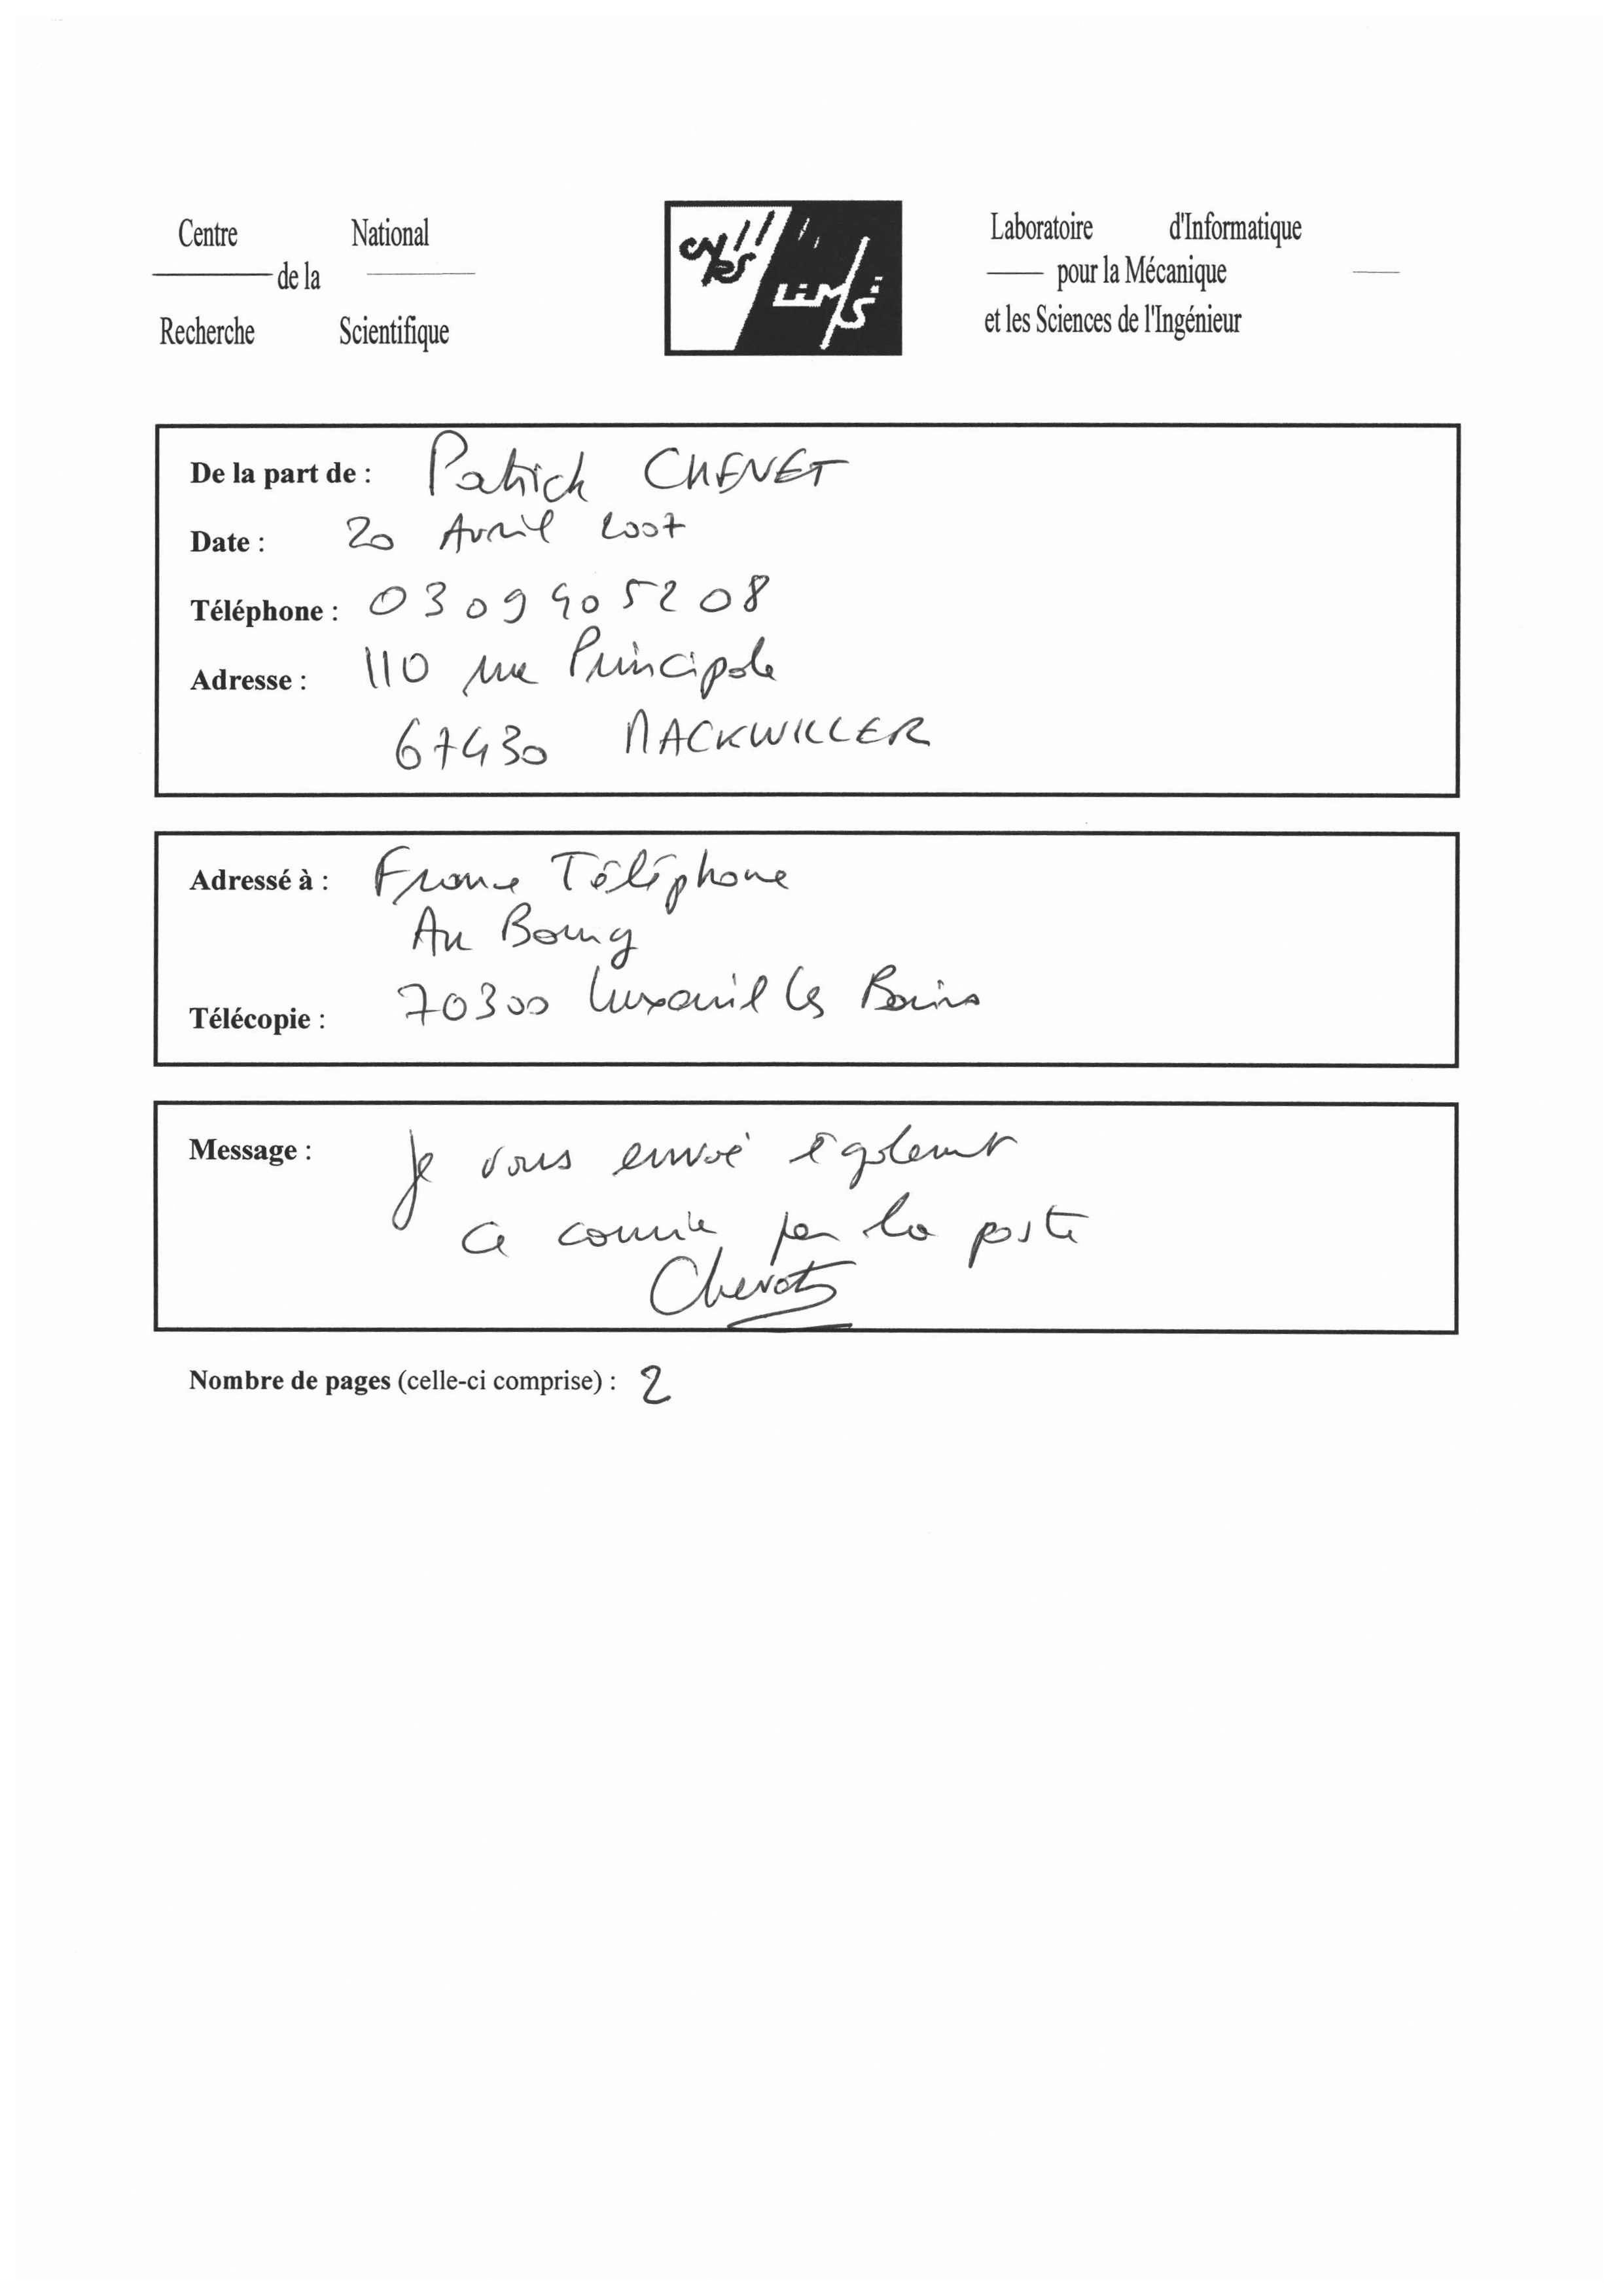 Centre National
de la
Recherche Scientifique
Laboratoire d'Informatique
pour la Mécanique
et les Sciences de l'Ingénieur
De la part de : Patrick CHENET
Date : 20 Avril 2007
Téléphone : 0309905208
Adresse : 110 rue Principale
67430 MACKWILLER
Adressé à : France Téléphone
Au Bourg
70300 Luxeuil les Bains
Télécopie :
Message : Je vous envoé également
ce courrier par la poste
Nombre de pages (celle-ci comprise) : 2